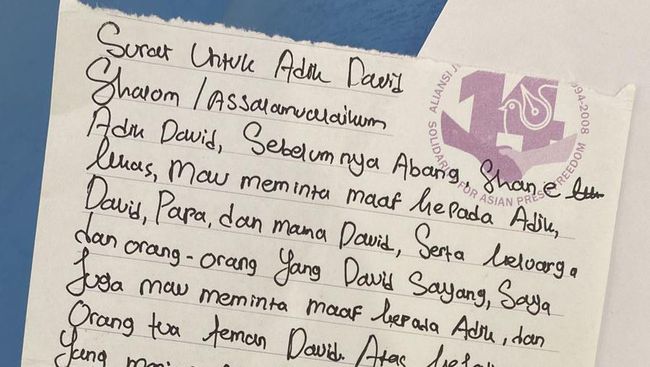 Surat Untuk Adik David
Shalom / Assalamualaikum
Adik David, Sebelumnya Abang, Shane
lukas, mau meminta maaf kepada Adik,
David, Papa, dan mama David, Serta keluarga
dan orang-orang Yang David Sayang, Saya
Juga mau meminta maaf kepada Adik, dan
Orang tua teman David. Atas
Yang
ALIANSI J 1994-2008
14
SOLIDARITY FOR ASIAN PRESS FREEDOM